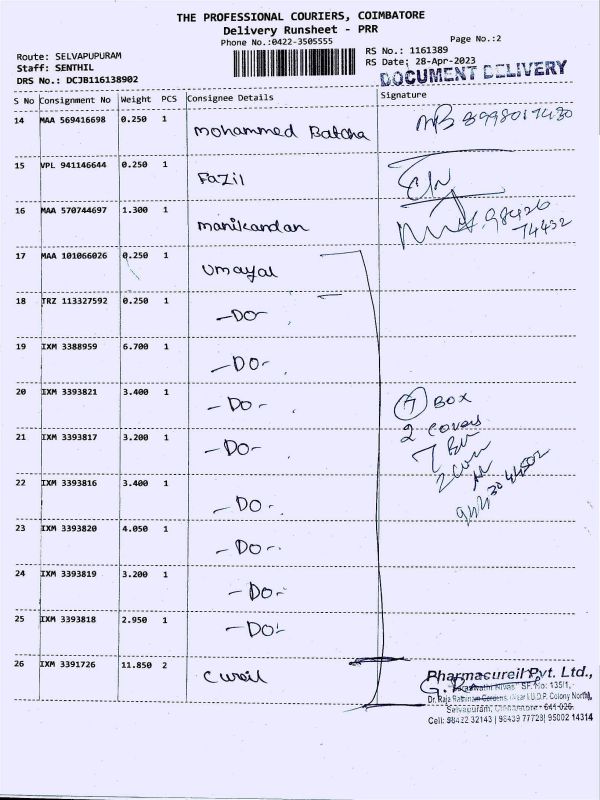 THE PROFESSIONAL COURIERS, COIMBATORE
Delivery Runsheet - PRR
Phone No.:0422-3505555
Page No.:2
Route: SELVAPUPURAM
Staff: SENTHIL
DRS No.: DCJB116138902
RS No.: 1161389
RS Date: 28-Apr-2023
DOCUMENT DELIVERY
S No Consignment No Weight PCS Consignee Details Signature
14 MAA 569416698 0.250 1 Mohammed Batcha
15 VPL 941146644 0.250 1 Fazil
16 MAA 570744697 1.300 1 Manikandan 98426
74432
17 MAA 101066026 0.250 1 Umayal
18 TRZ 113327592 0.250 1 -DO-
19 IXM 3388959 6.700 1 -DO-
20 IXM 3393821 3.400 1 -DO- 7 BOX
2 covers
21 IXM 3393817 3.200 1 -DO-
22 IXM 3393816 3.400 1 -DO-
23 IXM 3393820 4.050 1 -DO-
24 IXM 3393819 3.200 1 -DO-
25 IXM 3393818 2.950 1 -DO-
26 IXM 3391726 11.850 2 Cureil
Pharmacureil Pvt. Ltd.,
Saraswathi Nivas" SF. No: 135/1,
Dr. Raja Rathinam Gardens, (Near I.U.D.P. Colony North),
Selvapuram, Coimbatore - 641 026.
Cell: 98422 32143 | 98439 77728| 95002 14314